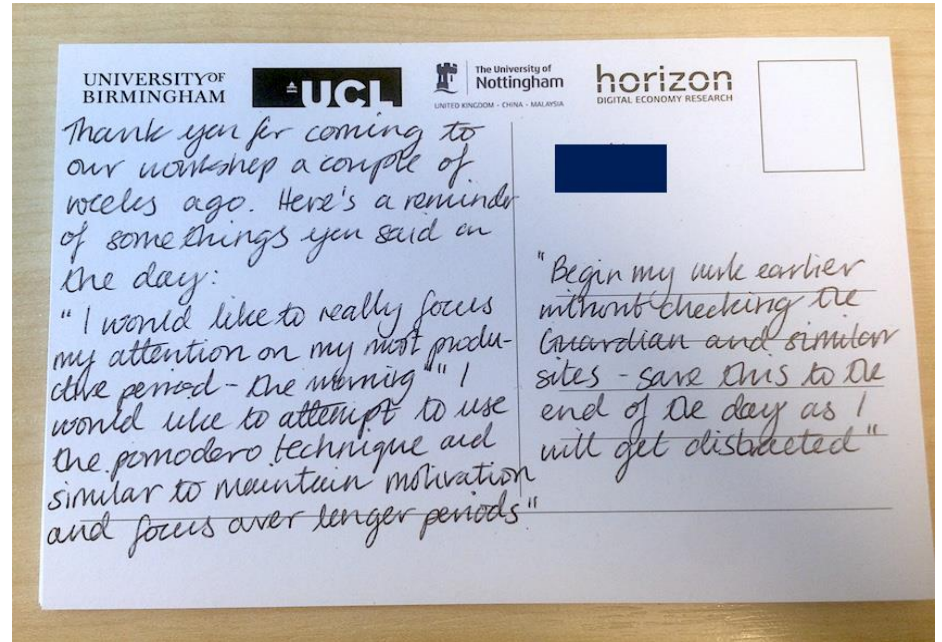 UNIVERSITY OF
BIRMINGHAM
UCL
The University of
Nottingham
UNITED KINGDOM · CHINA · MALAYSIA
horizon
DIGITAL ECONOMY RESEARCH
Thank you for coming to
our workshop a couple of
weeks ago. Here's a reminder
of some things you said on
the day:
"I would like to really focus
my attention on my most produ-
ctive period - the morning" "I
would like to attempt to use
the pomodero technique and
similar to maintain motivation
and focus over longer periods"
"Begin my work earlier
without checking the
Guardian and similar
sites - save this to the
end of the day as I
will get distracted"